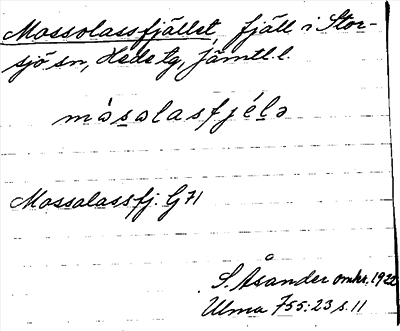 Mossolassfjället, fjäll i Stor-
sjö sn, Hede tg, Jämtl. l.
mòsolasfjélə
Mossalassfj. G 71
S. Åsander omkr. 1922
Ulma 755:23 s. 11